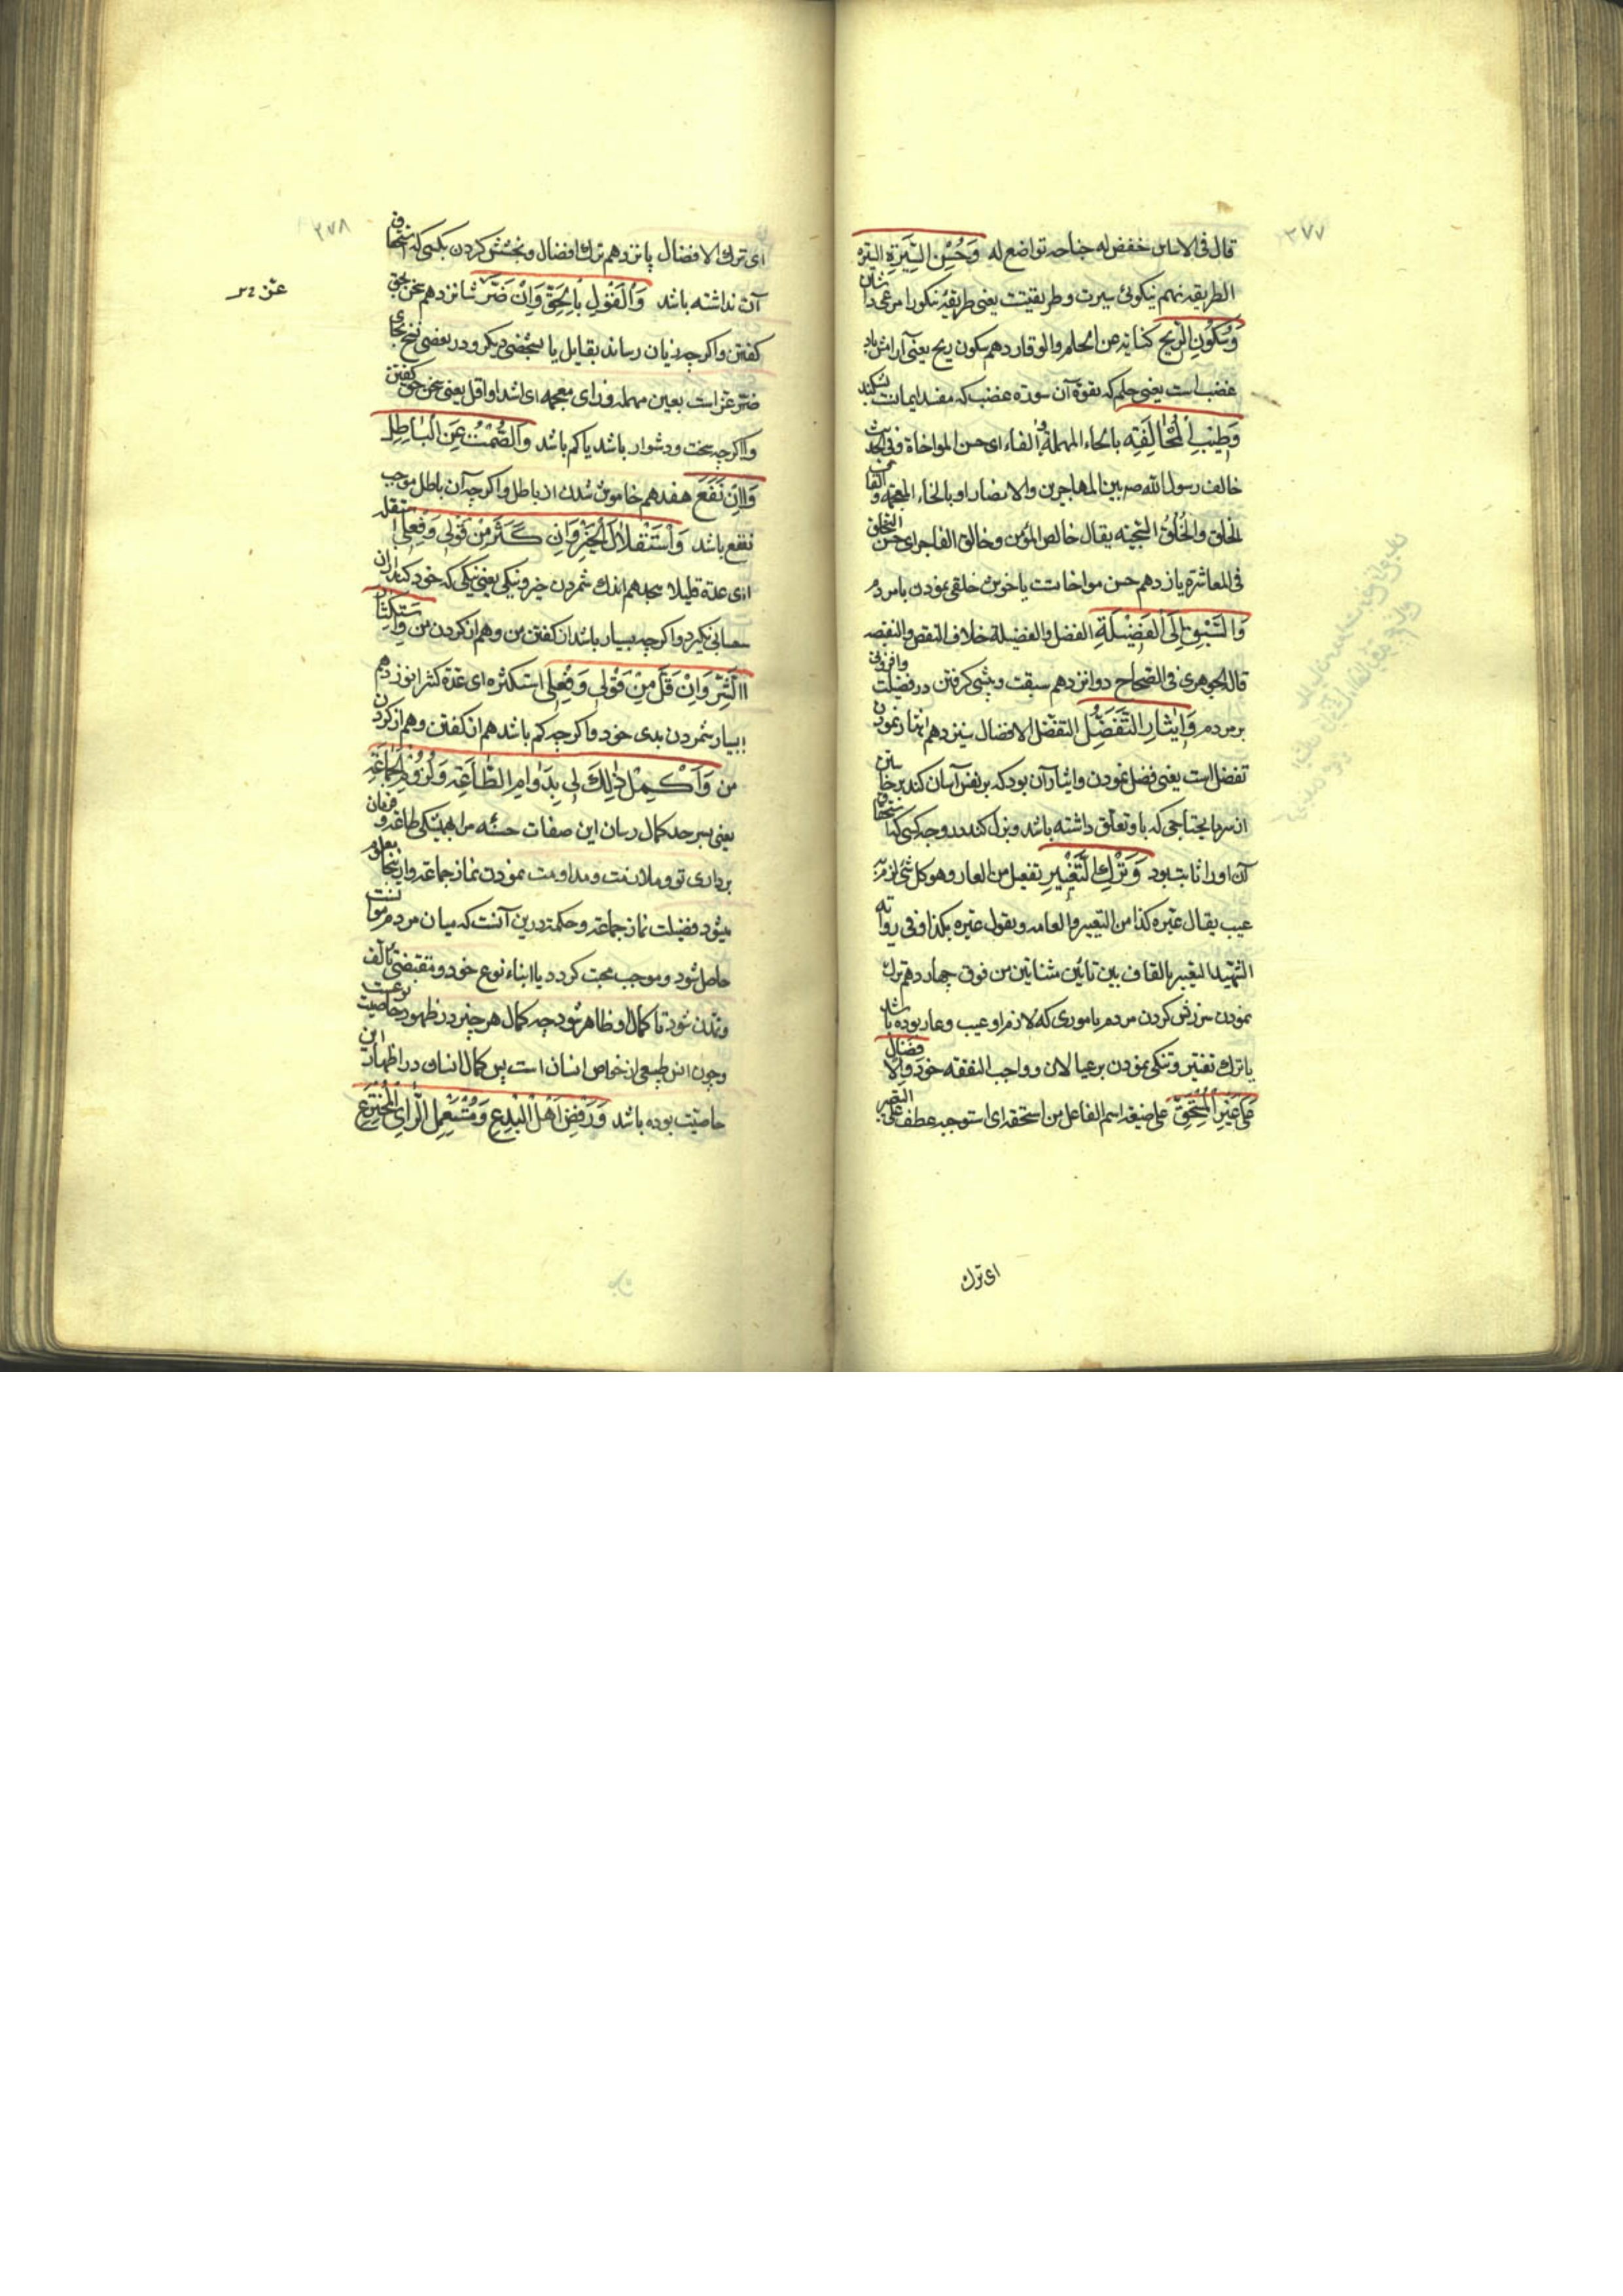 ۲۷۷
قال فی الاساس خفض له جناحه تواضع له وَحُسْنِ السِّیرَةِ السیرة
الطریقه نهم نیکوئی سیرت و طریقیتت یعنی طریقهٔ نیکو را مرعی داشتن
وَسُکُونِ الرِّیحِ کنایة عن الحلم والوقار دهم سکون ریح یعنی آرامش باد
غضب است یعنی حلم که بقوة آن سورة غضب که مفسد ایمانست بشکند
وَطِیبِ الْمُخالَفَةِ بالحاء المهملة والفاء ای حسن المواخاة وفی الحدیث
خالف رسول الله صم بین المهاجرین والانصار او بالخاء المعجمة والقاف من
الخلق والخُلُق السّجیّة یقال خالص المؤمن وخالق الفاجر ای حسن التخلق
فی المعاشرة یازدهم حسن مواخاتست یا خوش خلقی نمودن با مردم
وَالسَّبْقِ اِلَی الْفَضیلَةِ الفضل والفضیلة خلاف النقص والنقیصه
قاله الجوهری فی الصّحاح دوازدهم سبقت و پیشی گرفتن در فضیلت وافزونی
بر مردم وَایثارِ التَّفَضُّلِ التفضل الافضال سیزدهم ایثار نمودن
تفضل است یعنی فضل نمودن و ایثار آن بود که بر نفس آسان کند برخاستن
از سر ما یحتاجی که باو تعلّق داشته باشد و بذل کند در وجه کسی که استحقاق
آن او را ثابت بود وَتَرْكِ التَّعْییرِ تفعیل من العار وهو کل شئ لزم به
عیب یقال عیّره کذا من التعییر والعامه ویقول عیّره بکذا وفی روایة
الشهید التقتیر بالقاف بین تائین مثناتین من فوق چهاردهم ترك
نمودن سرزنش کردن مردم باموری که لازم او عیب و عار بوده باشد
یا ترك تقتیر و تنگی نمودن بر عیالان و واجب النفقه خود وَالْاِفضالِ
عَلی غَیْرِ الْمُسْتَحِقِّ علی صیغة اسم الفاعل من استحقه ای استوجبه عطف علی التعییر
ای ترك
۲۷۸
ای ترك الافضال پانزدهم ترك افضال و بخشش کردن بکسی که استحقاق
آن نداشته باشد وَالْقَوْلِ بِالْحَقِّ وَاِنْ ضَرَّ شانزدهم سخن بحق
گفتن و اگر چه زیان رساند بقایل یا بشخصی دیگر و در بعضی نسخ بجای
ضرّ عزّ است بعین مهمله و زای معجمه ای اشتد او اقل یعنی سخن حق گفتن
و اگر چه سخت و دشوار باشد یا کم باشد وَالصَّمْتِ عَنِ الْباطِلِ
وَاِنْ نَفَعَ هفدهم خاموش شدن از باطل و اگر چه آن باطل موجب
نفع باشد وَاسْتِقْلالِ الْخَیْرِ وَاِنْ كَثُرَ مِنْ قَوْلی وَفِعْلی استقله
ای عدّه قلیلا هیجدهم اندك شمردن خیر و نیکی یعنی نیکی که خود کند از آن
حسابی نگیرد و اگر چه بسیار باشد از گفتن من و هم از کردن من وَاسْتِکْثارِ
الشَّرِّ وَاِنْ قَلَّ مِنْ قَوْلی وَفِعْلی استکثره ای عدّه کثیرا نوزدهم
بسیار شمردن بدی خود و اگر چه کم باشد هم از گفتن و هم از کردن
من وَاَكْمِلْ ذٰلِكَ لی بِدَوامِ الطّاعَةِ وَلُزُومِ الْجَماعَةِ
یعنی بسر حد کمال رسان این صفات حسنه مرا بهمیشگی طاعة و فرمان
برداری تو و ملازمت و مداومت نمودن نماز جماعة و از اینجا معلوم
میشود فضیلت نماز جماعة و حکمة درین آنست که میان مردم موانست
حاصل شود و موجب محبت گردد با ابناء نوع خود و مقتضی تألف
و تمدن شود تا کمال او ظاهر شود چه کمال هر چیز در ظهور خاصیت نوعست
و چون انس طبیعی از خواص انسان است پس کمال انسان در اظهار این
خاصیّت بوده باشد وَرَفْضِ اَهْلِ الْبِدَعِ وَمُسْتَعْمِلِ الرَّأیِ الْمُخْتَرَعِ